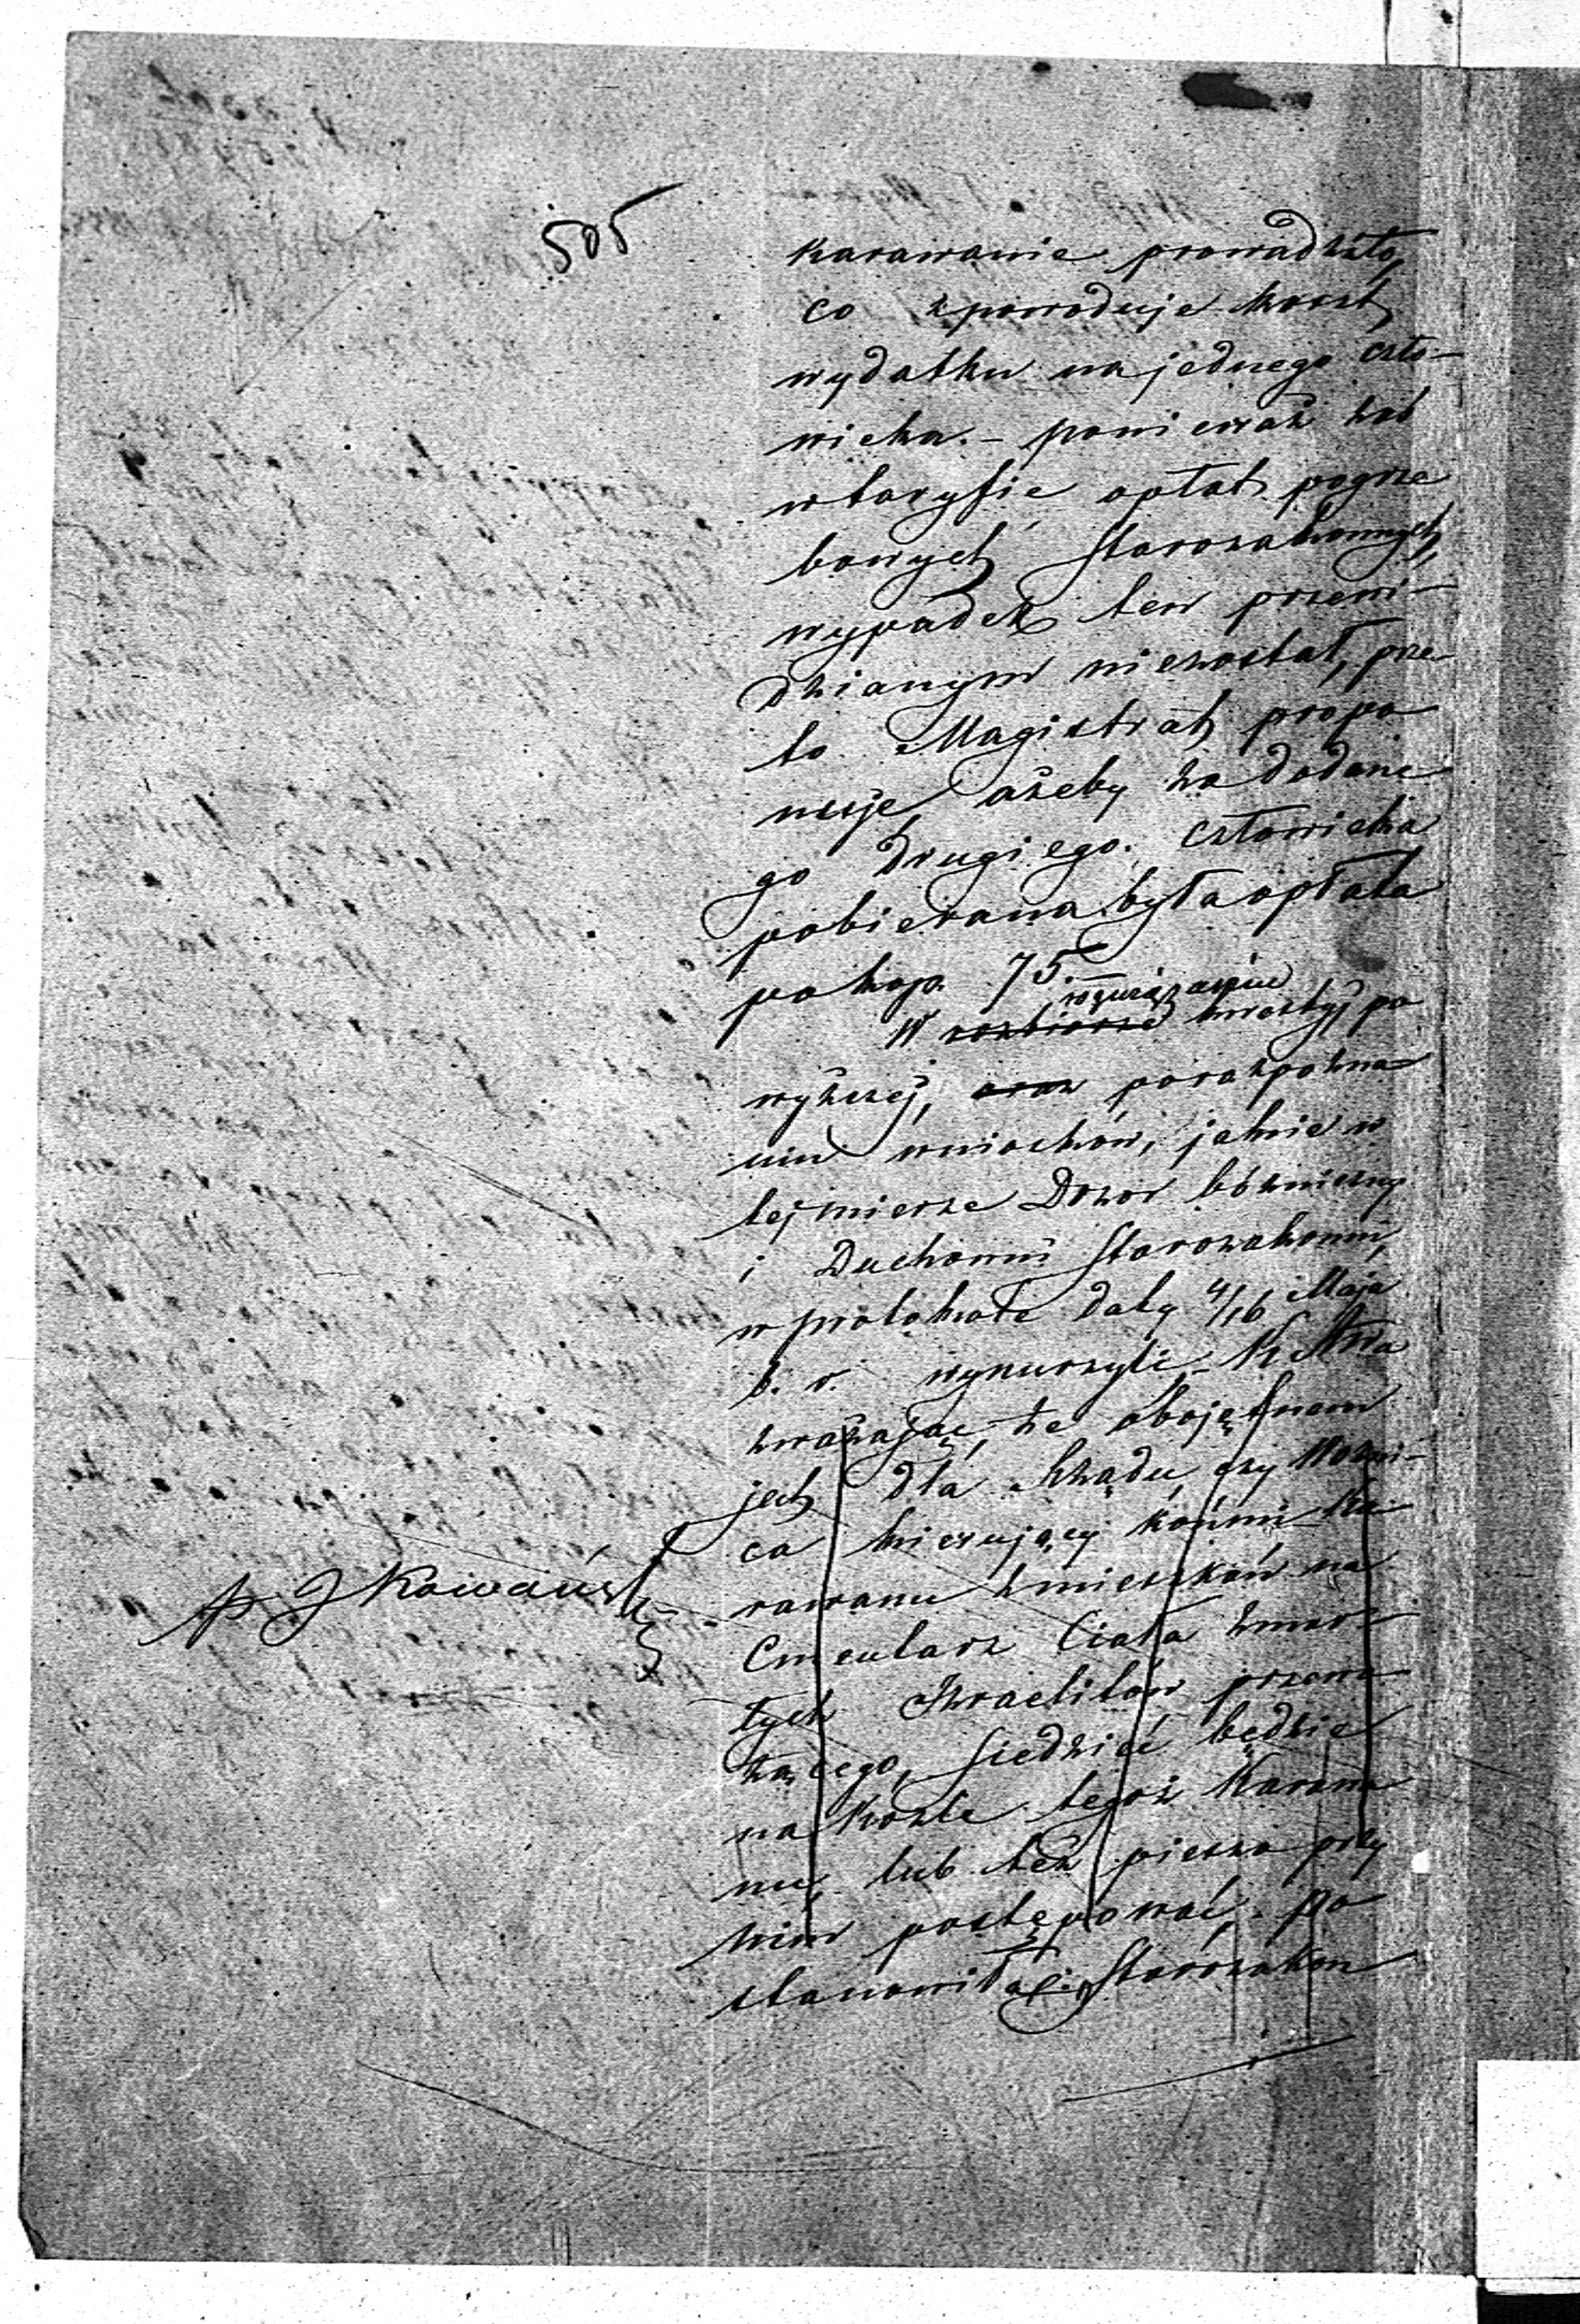 505
karawanie prowadziło,
co spowoduje koszt
wydatku na jednego czło-
wieka. – ponieważ zaś
w taryfie opłat pogrze
bowych Starozakonnych,
wypadek ten przewi-
dzianym niezostał, prze-
to Magistrat propo
nuje, ażeby za dodane
go drugiego człowieka
pobierana była opłata
po kop. 75.
W rozbiorze rozwiązaniu kwestyj po
wyższej, oraz po rozpozna
niu wniosków, jakie w
tej mierze Dozor bóżniczny
i Duchowni Starozakonni,
w protokole daty 4/16 Maja
b. r. wynurzyli –
zważając, że obojętnem
jest dla Rządu, czy Woźni-
ca kierujący końmi Ka
rawanu z mieszkań na
Cmentarz Ciała zmar-
łych Izraelitów przewo
żącego, siedzieć będzie
na Koźle tegoż Karawa
nu, lub też pieszo przy
nim postępować. – po
stanowiła Starozakon